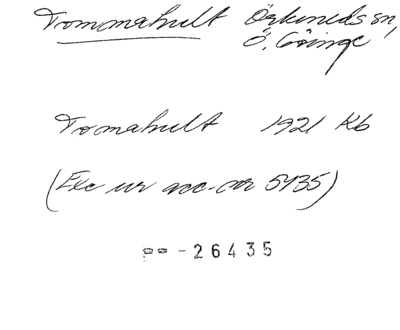 Tommahult Örkeneds sn,
Ö. Göinge
Tomahult 1921 Kb
(Exc ur acc. nr 5435)
26435